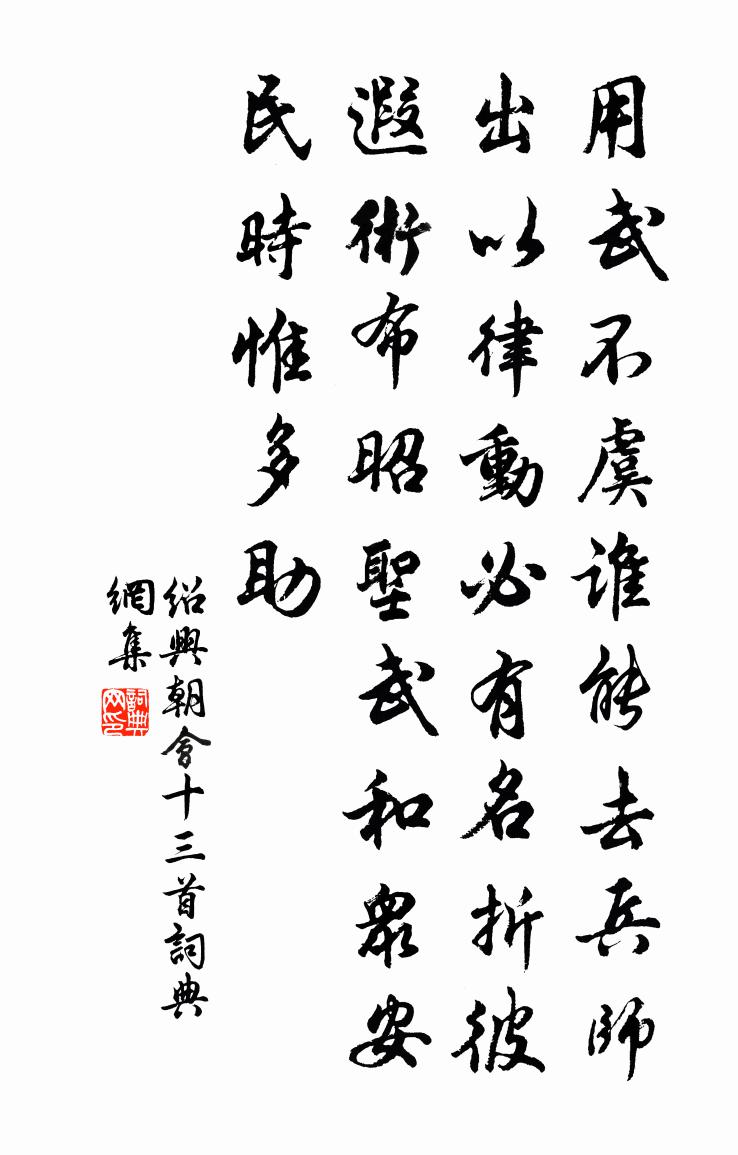 用武不虞誰能去兵師
出以律動必有名折彼
遐衝布昭聖武和眾安
民時惟多助
紹興朝會十三首詞典
網集
詞典
网印